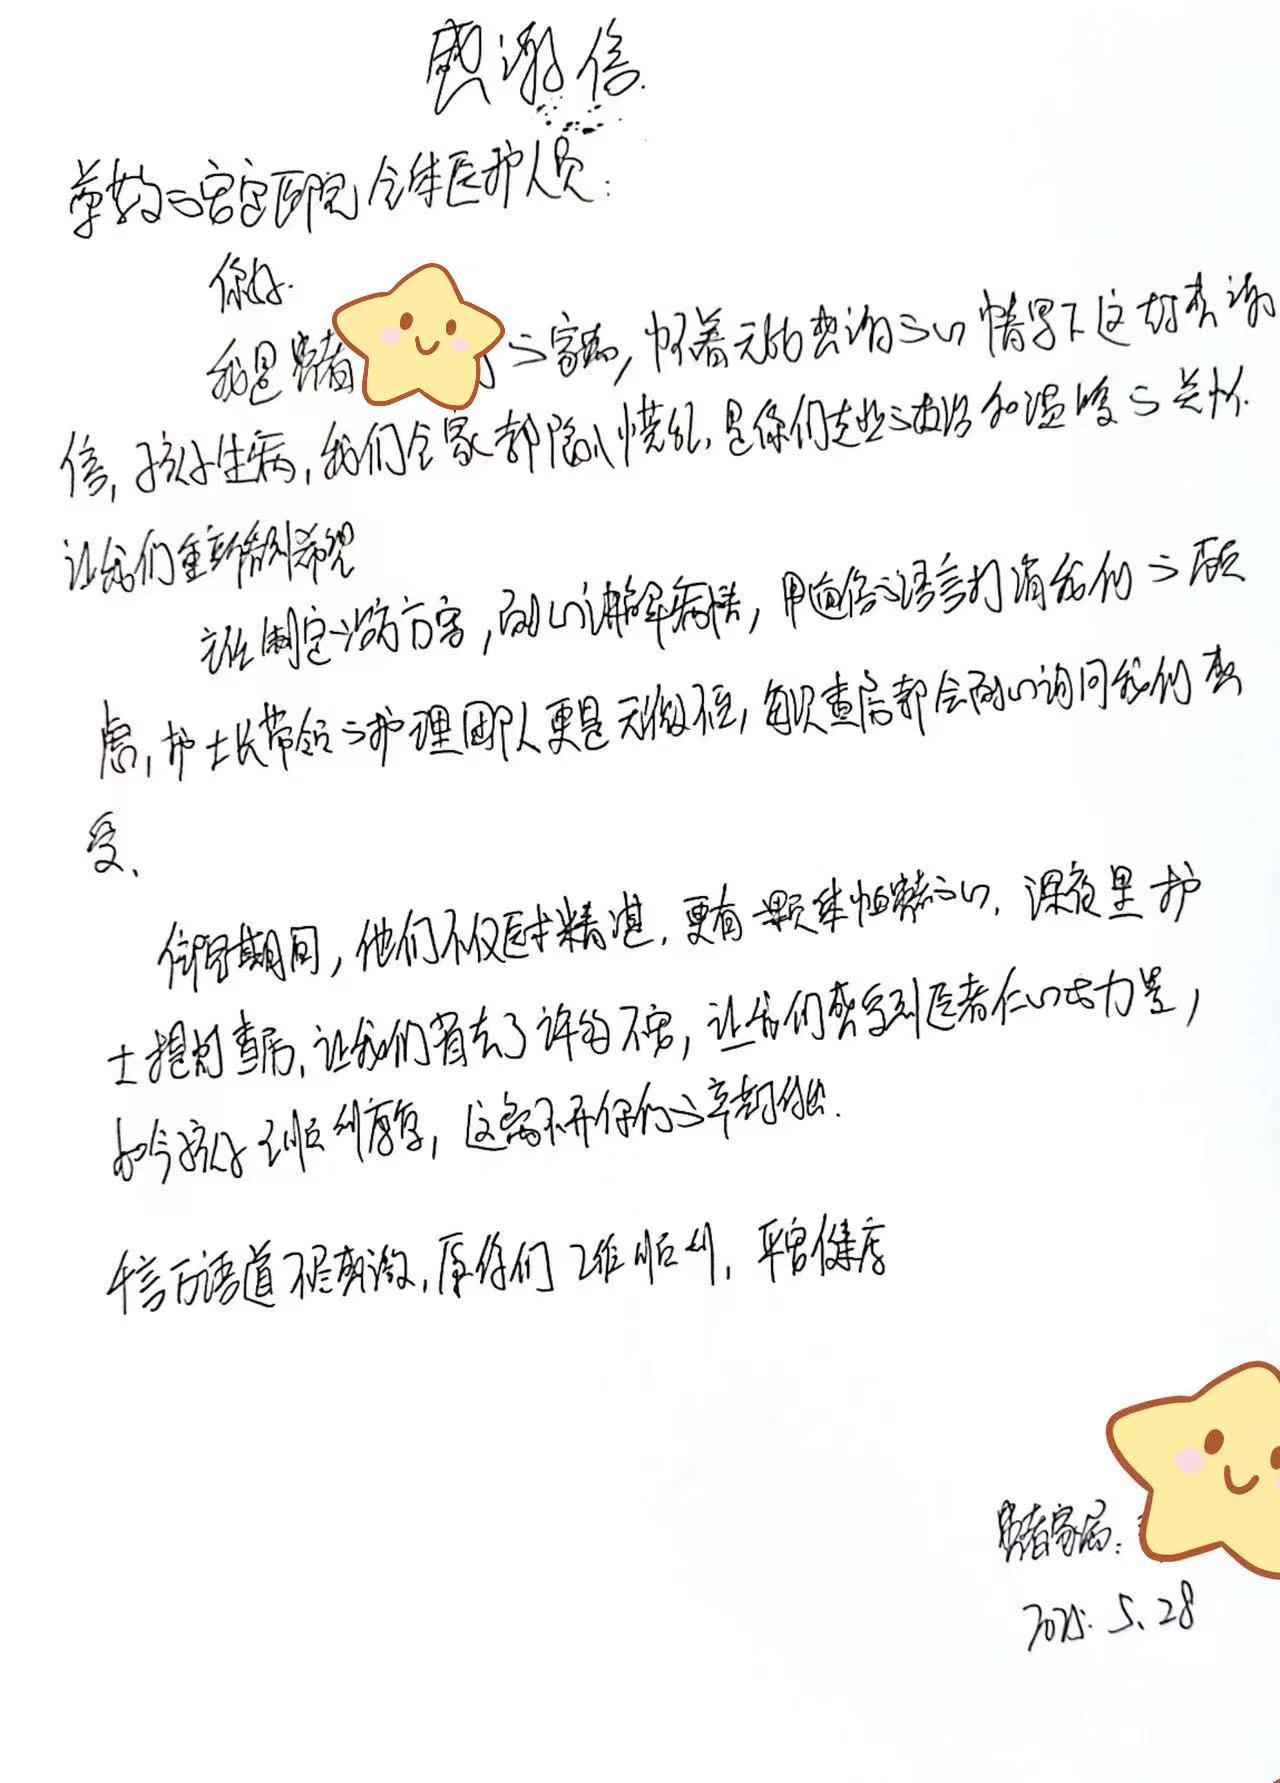 感谢信
尊敬的宏医院全体医护人员：
你好.
我是患者 的家属，怀着无比感谢的心情写下这封感谢
信，孩子生病，我们全家都陷入慌乱，是你们专业的救治和温暖的关怀.
让我们重新看到希望
主任制定治疗方案，耐心讲解病情，用通俗的语言打消我们的顾
虑，护士长带领的护理团队更是无微不至，每次查房都会耐心询问我们感
受、
住院期间，他们不仅医术精湛，更有一颗体恤患者的心，深夜里护
士提灯查房，让我们省去了许多不安，让我们感受到医者仁心的力量，
如今孩子顺利康复，这离不开你们的辛勤付出.
千言万语道不尽感激，愿你们工作顺利，平安健康
患者家属：
2025.5.28